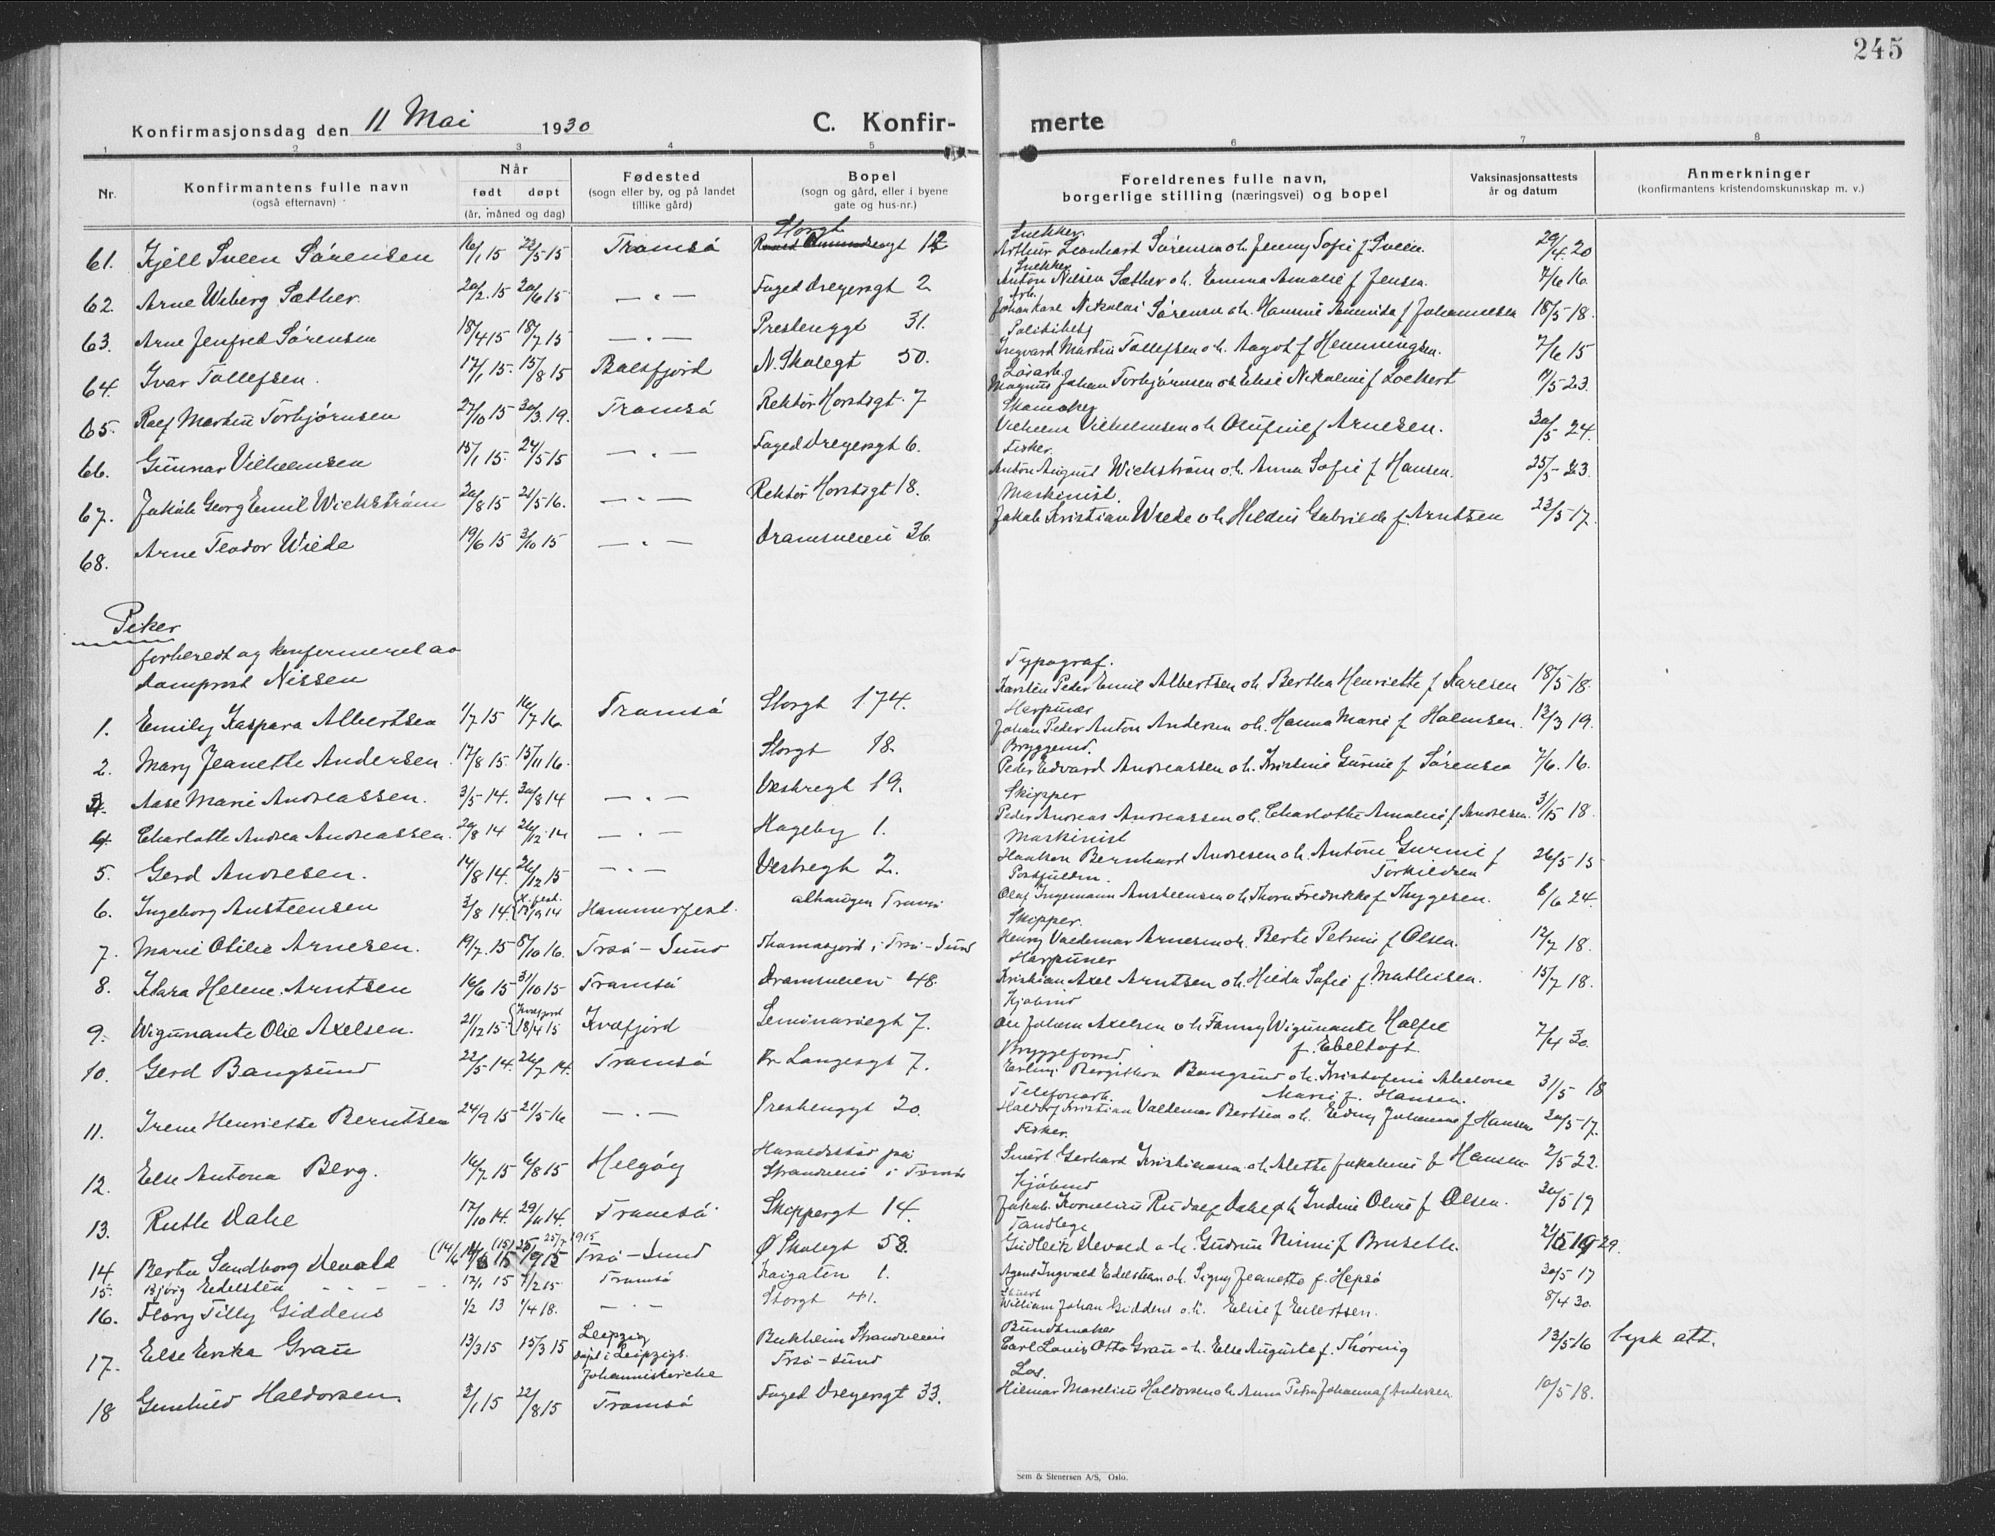 245
Konfirmasjonsdag den 11 Mai 1930
C. Konfir-
merte
1 2 3 4 5 6 7 8
Nr.
Konfirmantens fulle navn
(også efternavn)
Når
født døpt
(år, måned og dag)
Fødested
(sogn eller by, og på landet
tillike gård)
Bopel
(sogn og gård, eller i byene
gate og hus-nr.)
Foreldrenes fulle navn,
borgerlige stilling (næringsvei) og bopel
Vaksinasjonsattests
år og datum
Anmerkninger
(konfirmantens kristendomskunnskap m. v.)
61. Kjell Sveen Sørensen 16/1 15 22/5 15 Tromsø Storgt 12 Snekker Arthur Leonhart Sørensen o.h. Jenny Sofie f. Sveen. 29/4 20
62. Arne Wiberg Sæther. 20/2 15 20/6 15 — " — Foged Dreyersgt 2 Snekker Anton Nilsen Sæther o.h. Emma Amalie f Jensen. 7/6 16.
63. Arne Jenfred Sørensen 18/4 15 18/7 15 — " — Prestenggt 31. Arb. Johan Karl Nikolai Sørensen o.h. Hansine f Johannesen 18/5 18.
64. Ivar Tollefsen. 17/1 15. 15/8 15 Balsfjord N. Skolegt 50. Politibetj Ingvard Martin Tollefsen o.h. Aagot f Henningsen. 7/6 15
65. Rolf Martin Torbjørnsen 27/10 15 30/3 19. Tromsø Rektor Horstsgt. 7 Løsarb. Magnus Johan Torbjørnsen o.h. Elise Nikoline f Lockert 11/5 23.
66. Gunnar Vilhelmsen 15/1 15. 24/5 15 — " — Foged Dreyersgt 6. Skomaker Vilhelm Vilhelmsen o.h. Olufine f Arnesen. 30/5 24.
67. Jakob Georg Emil Wickstrøm 20/8 15 21/5 16. — " — Rektor Horstsgt 18. Fisker. Anton August Wickstrøm o.h. Anna Sofie f Hansen. 25/5 23.
68. Arne Teodor Wiede 19/6 15 3/10 15 — " — Dramsveien 36. Maskinist. Jakob Kristian Wiede o.h. Gabrielle f. Arntsen 23/5 17.
Piker
forberedt og konfirmeret av
domprost Nissen
1. Emily Kaspara Albertsen 1/7 15 16/7 16 Tromsø Storgt 174. Typograf. Karsten Peder Emil Albertsen o.h. Bertha Henriette f Karlsen 18/5 18.
2. Mary Jeanette Andersen. 17/8 15. 15/11 16. Storgt 18. Harpuner Johan Peder Anton Andersen o.h. Hanna Marie f Holmsen. 12/3 19.
3. Aase Marie Andreassen. 3/5 14. 30/8 14 — " — Vestregt 19. Bryggemd. Peder Edvard Andreassen o.h. Kristine Gurine f. Sørensen 7/6. 16.
4. Charlotte Andrea Andreassen. 20/8 14 26/12 14 — " — Hageby 1. Skipper Peder Andreas Andreassen o.h. Charlotte Amalie f. Andresen. 3/5 18.
5. Gerd Andresen. 14/8 14. 26/12 15 — " — Vestregt 2. Maskinist Haakon Bernhard Andresen o.h. Antone Gurine f Torkildsen 26/5 15
6. Ingeborg Austeensen 3/8 14. /9 14 Hammerfest. Olaf Ingemann Austeensen o.h. Thora Fredrikke f Thygesen. 6/6 24.
7. Marie Otilie Arnesen. 19/7. 15 8/10 16. Trsø-Sund Thomasjord i Trsø-Sund Skipper. Henry Valdemar Arnesen o.h. Berte Petrine f Olsen. 12/7 18.
8. Klara Helene Arntsen 16/6 15 31/10 15 Tromsø Dramsveien 48. Harpuner Kristian Axel Arntsen o.h. Hilda Sofie f. Mathisen. 15/7 18.
9. Wigunante Olie Axelsen. 21/12 15. (Kvæfjord 18/4 15 Kvæfjord Seminariegt 7. Kjøbmd Ole Johan Axelsen o.h. Fanny Wigunante Holfie f. Ebeltoft. 7/4 30.
10. Gerd Bangsund 22/5 14. 26/7 14. Tromsø Fr Langesgt 7. Bryggeformd Erling Bangsund o.h. Kristofine Marie f. Hansen. 31/5 18
11. Irene Henriette Berntsen 24/9 15 21/5 16 — " — Prestenggt 20. Telefonarb. Kristian Valdemar Bertsen o.h. Johanne f Hansen 20/5 17.
12. Else Antona Berg. 16/7. 15 6/8 15 Helgøy Strandveien i Tromsø Fisker. Gerhard Kristiansen o.h. Alette Jakobine f Hansen 2/5 22.
13. Ruth Dahl 17/10 14. 29/11 14. Tromsø Skippergt 14. Kjøbmd Jakob Kornelius Rudolf Dahl o h Indine Oline f Olsen. 30/5 17
14. Berta Sandborg Devold Trsø-Sund Ø Skolegt 58. Tandlege Gudleik Devold o.h. Gudrun Ninni f Brusetth.
15. Bjørg Edelsteen 12/1 15 7/2 15 Tromsø Kaigaten 1. Agent Ingvald Edelsteen o.h. Signy Jeanette f. Hepsø 20/5 17
16. Flory Tilly Giddens 1/2 13 1/4 18. — " — Storgt 41. William Johan Giddens o.h. Elise f Eilertsen. 8/4 30.
17. Else Erika Grau 13/3 15 15/3 15 Leipzig Døpt i Leipzigs. Johanniskirche Bekheim Strandveien Trsø-sund Bundtmaker Carl Louis Otto Grau o.h. Else Auguste f. Thornig 13/5 16 tysk att.
18 Gunhild Haldorsen. 3/1 15 22/8 15 Tromsø Foged Dreyersgt 33. Los. Hilmar Marelius Haldorsen o.h. Anna Petra Johanna f Andersen. 10/5 18.
Sem & Stenersen A/S, Oslo.